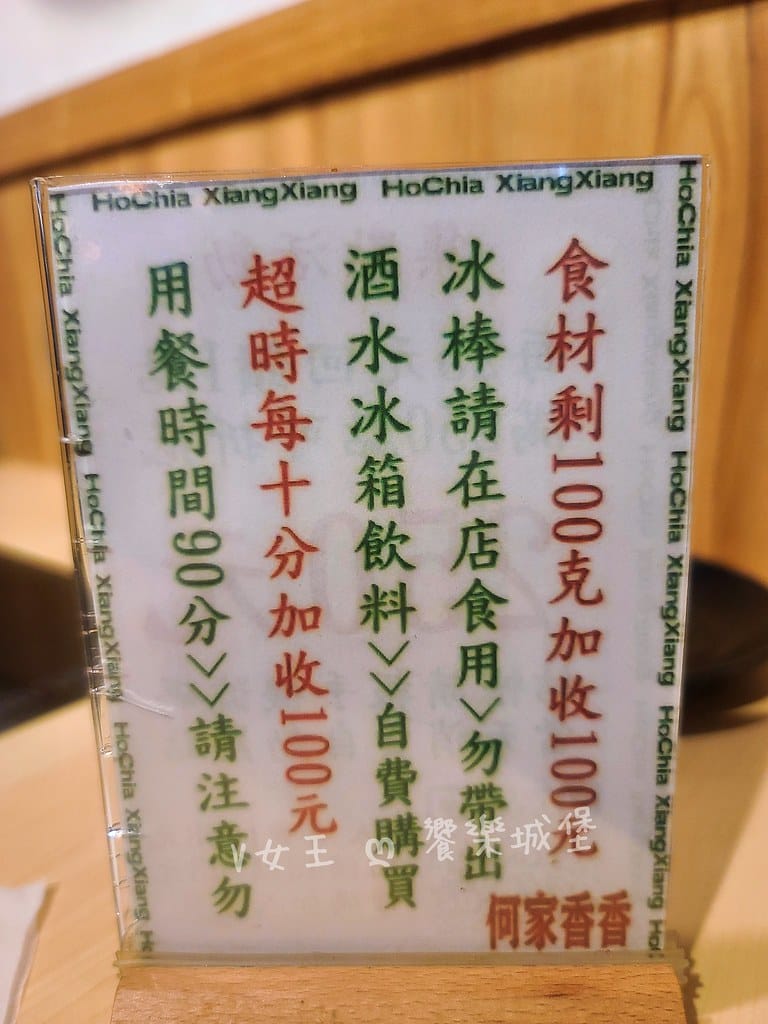 HoChia XiangXiang HoChia XiangXiang
HoChia XiangXiang HoChia XiangXiang HoChia XiangXiang Ho
食材剩100克加收100元
冰棒請在店食用>勿帶出
酒水冰箱飲料>>自費購買
超時每十分加收100元
用餐時間90分>>請注意勿
HoChia XiangXiang HoChia XiangXiang HoChia XiangXiang H
V女王 ♡ 饗樂城堡
何家香香